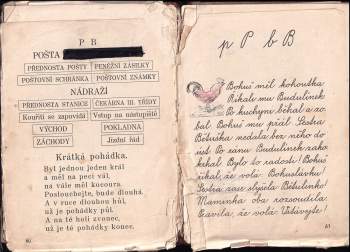 P B
POŠTA
PŘEDNOSTA POŠTY
PENĚŽNÍ ZÁSILKY
POŠTOVNÍ SCHRÁNKA
POŠTOVNÍ ZNÁMKY
NÁDRAŽÍ
PŘEDNOSTA STANICE
ČEKÁRNA III. TŘÍDY
Kouřiti se zapovídá
Vstup na nástupiště
VÝCHOD
POKLADNA
ZÁCHODY
Jízdní řád
Krátká pohádka.
Byl jednou jeden král
a měl na peci vál,
na vále měl kocoura.
Poslouchejte, bude dlouhá.
A v ruce dlouhou hůl,
už je pohádky půl.
A na té holi zvonec,
už je té pohádky konec.
60
p P b B
Bohuš měl kohoutka
Říkali mu Budulínek
Po kuchyni běhal a zo-
bal Bohuš mu přál Sestra
Bětuška nedala bez něho do
úst Po ránu Budulínek zako-
krhal Bylo to radosti! Bohuš
říkal, že volá: Bohuslávku!
Sestra zase slyšela Bětulinko!
Maminka oba rozsoudila
Pravila, že volá: Vstávejte!
61